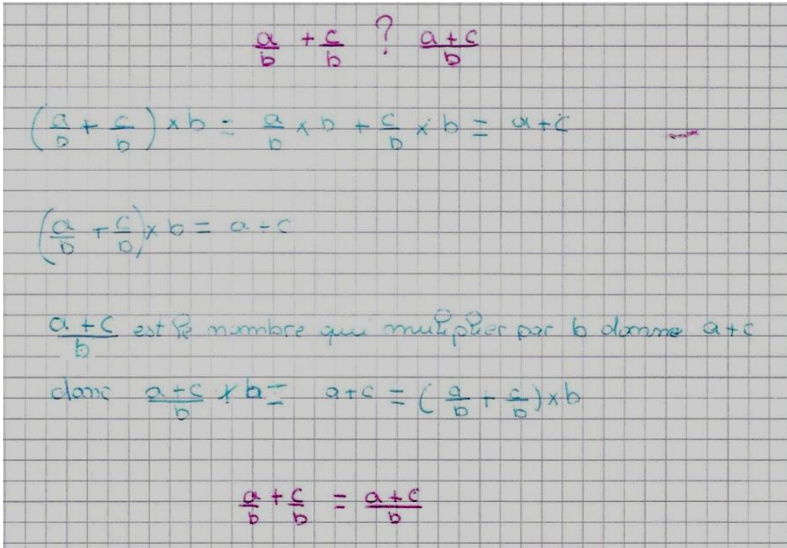 a/b + c/b ? a+c/b
(a/b + c/b) × b = a/b × b + c/b × b = a+c
(a/b + c/b) × b = a+c
a+c/b est le nombre qui multiplier par b donne a+c
donc a+c/b × b = a+c = (a/b + c/b) × b
a/b + c/b = a+c/b